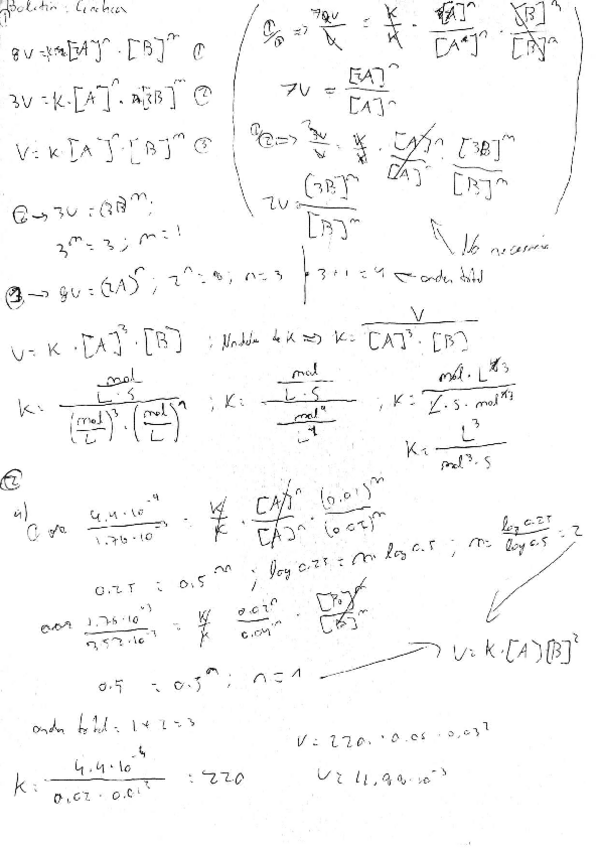 Boletín: Cinética
①
8V = K·[2A]ⁿ · [B]ᵐ ①
3V = K·[A]ⁿ · [3B]ᵐ ②
V = K·[A]ⁿ·[B]ᵐ ③
⇒ K/K · [2A]ⁿ/[A]ⁿ · [B]ᵐ/[B]ᵐ
7V = [2A]ⁿ/[A]ⁿ
⇒ 3V/V = K/K · [A]ⁿ/[A]ⁿ · [3B]ᵐ/[B]ᵐ
2V = (3B)ᵐ/[B]ᵐ
No necesario
② → 3V = (3B)ᵐ;
3ᵐ = 3; m = 1
→ 8V = (2A)ⁿ; 2ⁿ = 8; n = 3 | 3+1 = 4 ← orden total
V = K·[A]³·[B] ; de K ⇒ K = V/[A]³·[B]
K = (mol/L·S)/((mol/L)³·(mol/L)) ; K = (mol/L·S)/(mol⁴/L⁴) ; K = mol·L³/L·S·mol
K = L³/mol³·S
②
a)
4.4·10⁻⁴/1.76·10⁻³ = K/K · [A]ⁿ/[A]ⁿ · (0.01)ᵐ/(0.02)ᵐ
0.25 = 0.5ᵐ ; log 0.25 = m·log 0.5 ; m = log 0.25/log 0.5 = 2
1.76·10⁻³/3.52·10⁻³ = K/K · 0.02ⁿ/0.04ⁿ · [B]ᵐ/[B]ᵐ
V = K·[A][B]²
0.5 = 0.5ⁿ ; n = 1
orden total = 1+2 = 3
K = 4.4·10⁻⁴/0.02·0.01² = 220
V = 220 · 0.05 · 0.03²